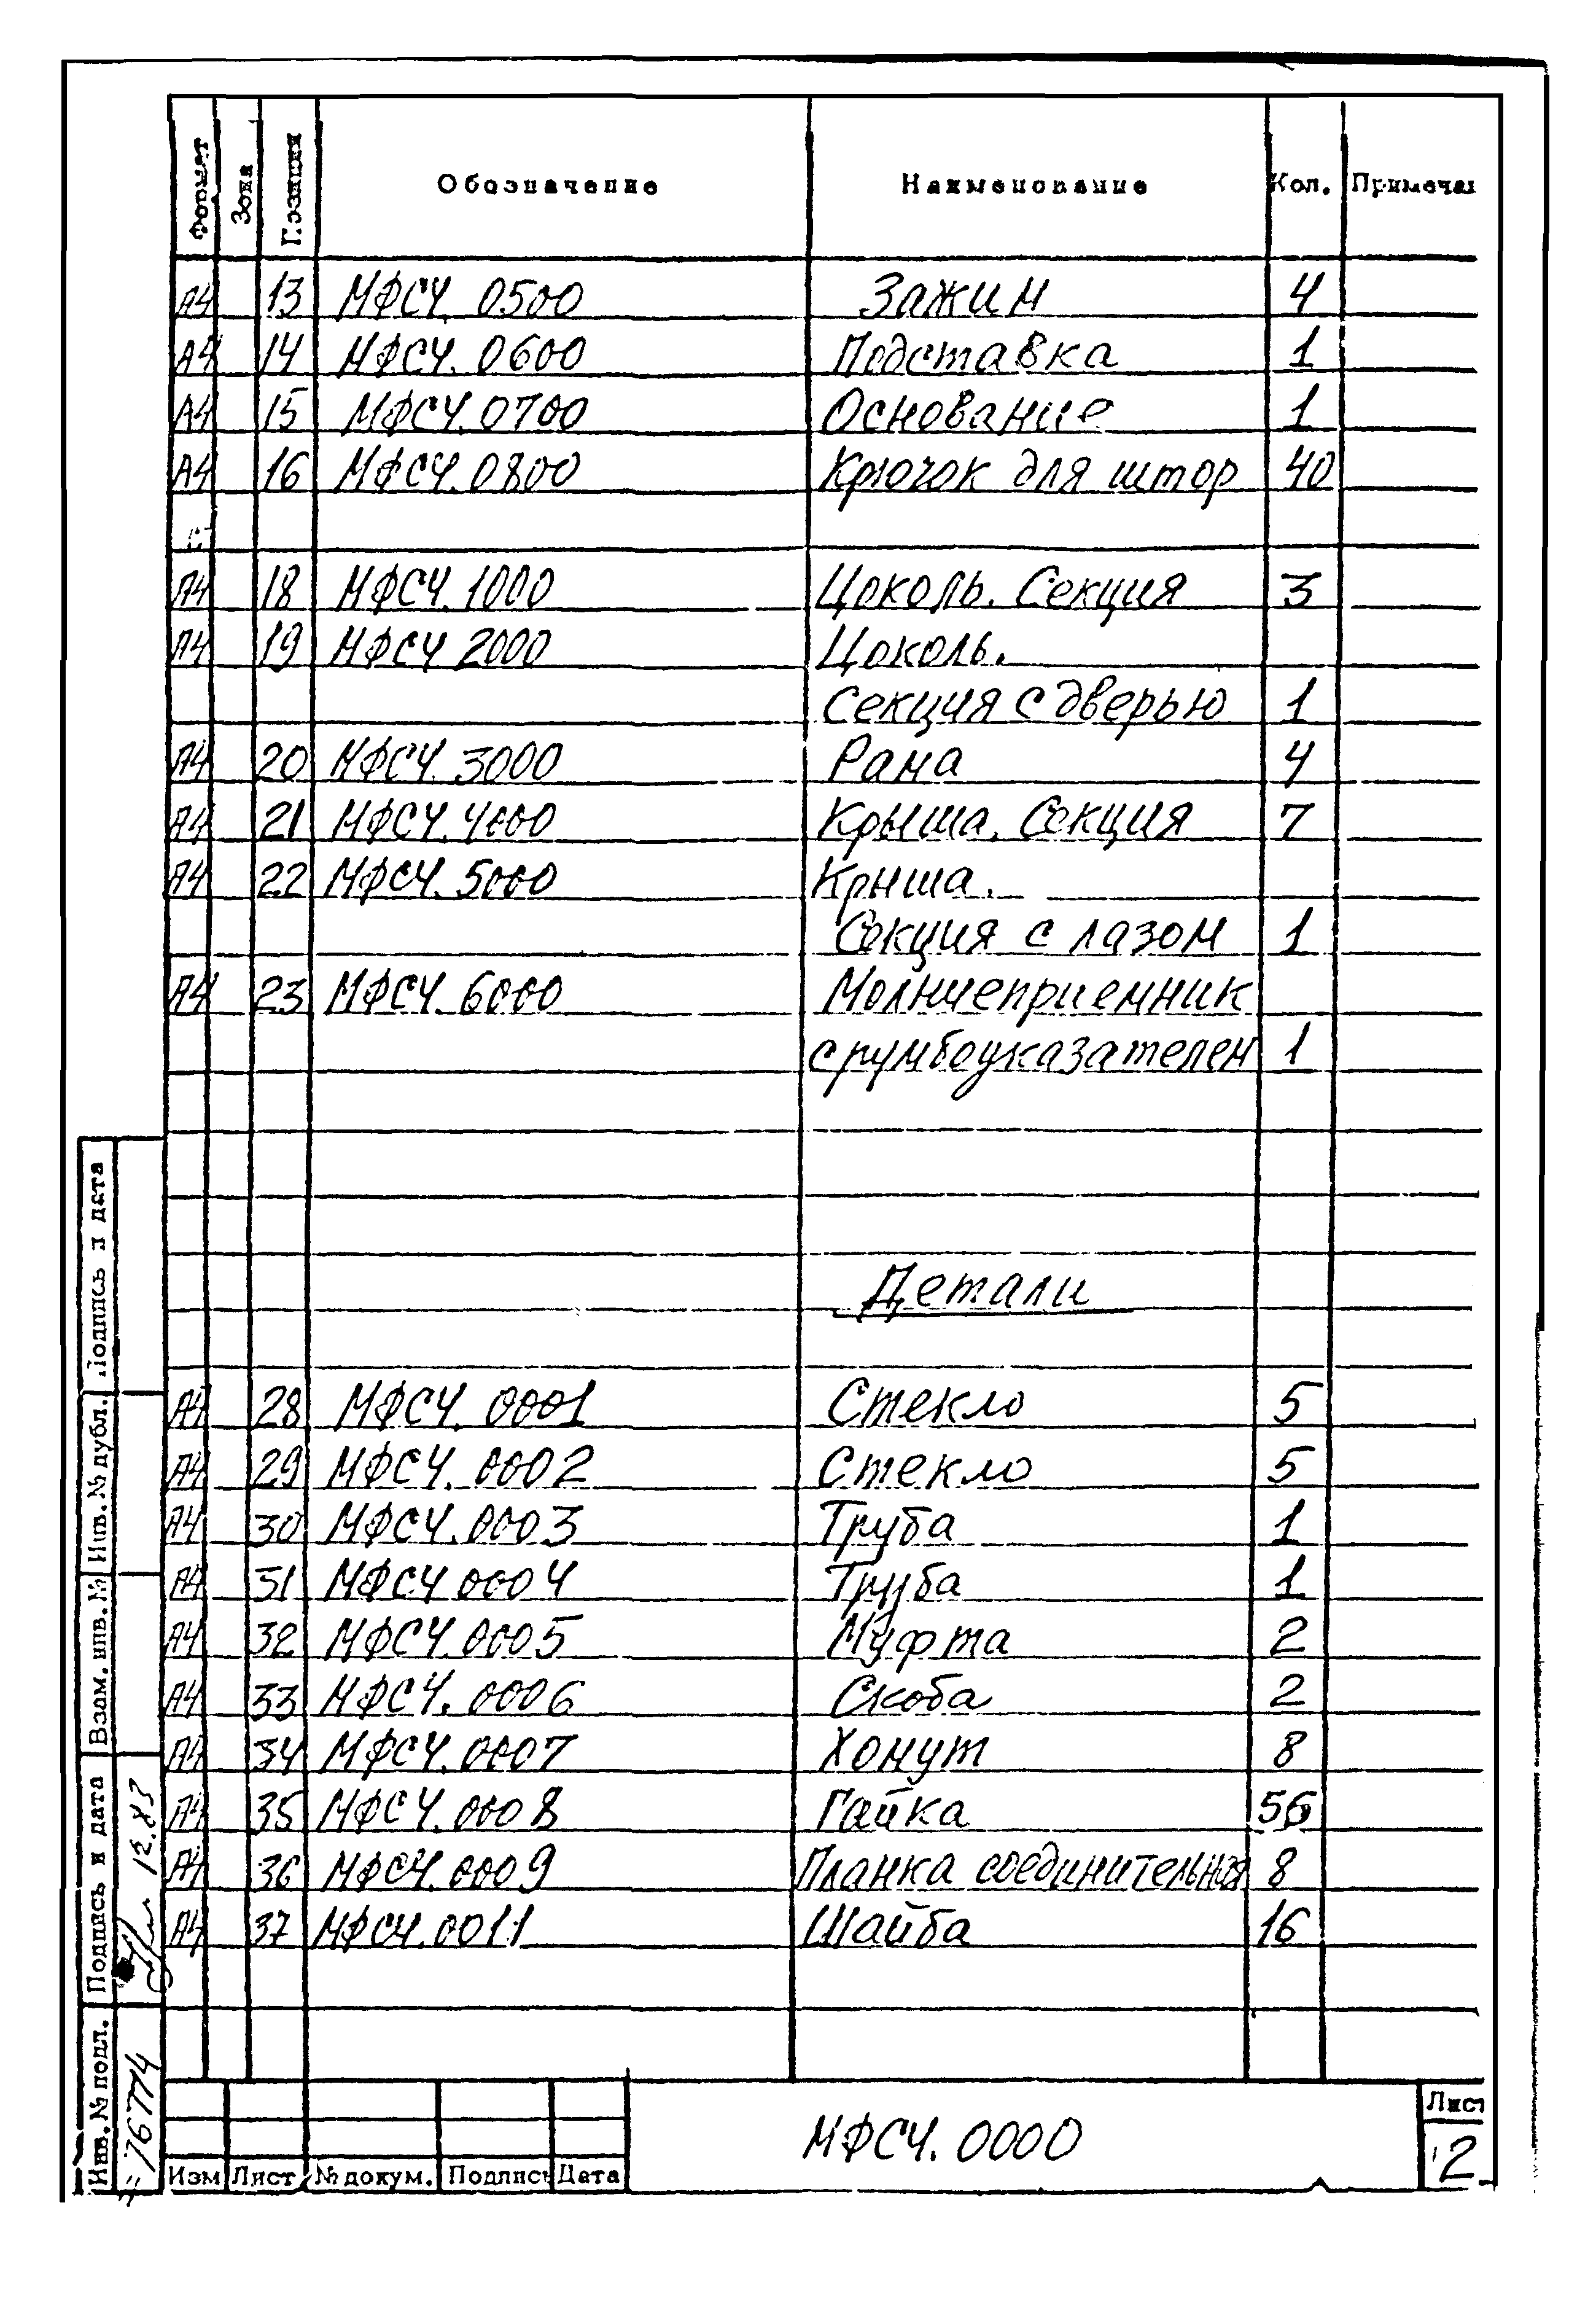 Формат Зона Позиция Обозначение Наименование Кол. Примечан
А4 13 МФСЧ. 0500 Зажим 4
А4 14 МФСЧ. 0600 Подставка 1
А4 15 МФСЧ. 0700 Основание 1
А4 16 МФСЧ. 0800 Крючок для штор 40
А4 18 МФСЧ. 1000 Цоколь. Секция 3
А4 19 МФСЧ 2000 Цоколь.
Секция с дверью 1
А4 20 МФСЧ. 3000 Рама 4
А4 21 МФСЧ. 4000 Крыша. Секция 7
А4 22 МФСЧ. 5000 Крыша.
Секция с лазом 1
А4 23 МФСЧ. 6000 Молниеприемник
с румбоуказателем 1
Детали
А4 28 МФСЧ. 0001 Стекло 5
А4 29 МФСЧ. 0002 Стекло 5
А4 30 МФСЧ. 0003 Труба 1
А4 31 МФСЧ 0004 Труба 1
А4 32 МФСЧ. 0005 Муфта 2
А4 33 МФСЧ. 0006 Скоба 2
А4 34 МФСЧ. 0007 Хомут 8
А4 35 МФСЧ. 0008 Гайка 56
А4 36 МФСЧ. 0009 Планка соединительная 8
А4 37 МФСЧ. 0011 Шайба 16
Подпись и дата
Инв. № дубл.
Взам. инв. №
Подпись и дата 12.83
Инв. № подл. 76774
Изм Лист № докум. Подпись Дата
МФСЧ. 0000
Лист
2